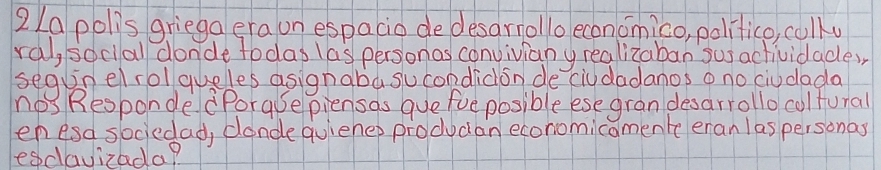 2 La polis griega era un espacio de desarrollo económico, político, cultu
ral, social donde todas las personas convivian y realizaban sus actividades,
según el rol que les asignaba su condición de ciudadanos o no ciudada
nos Responde. ¿Porqúe piensas que fue posible ese gran desarrollo cultural
en esa sociedad, donde quienes producian economicamente eran las personas
esclavizada?